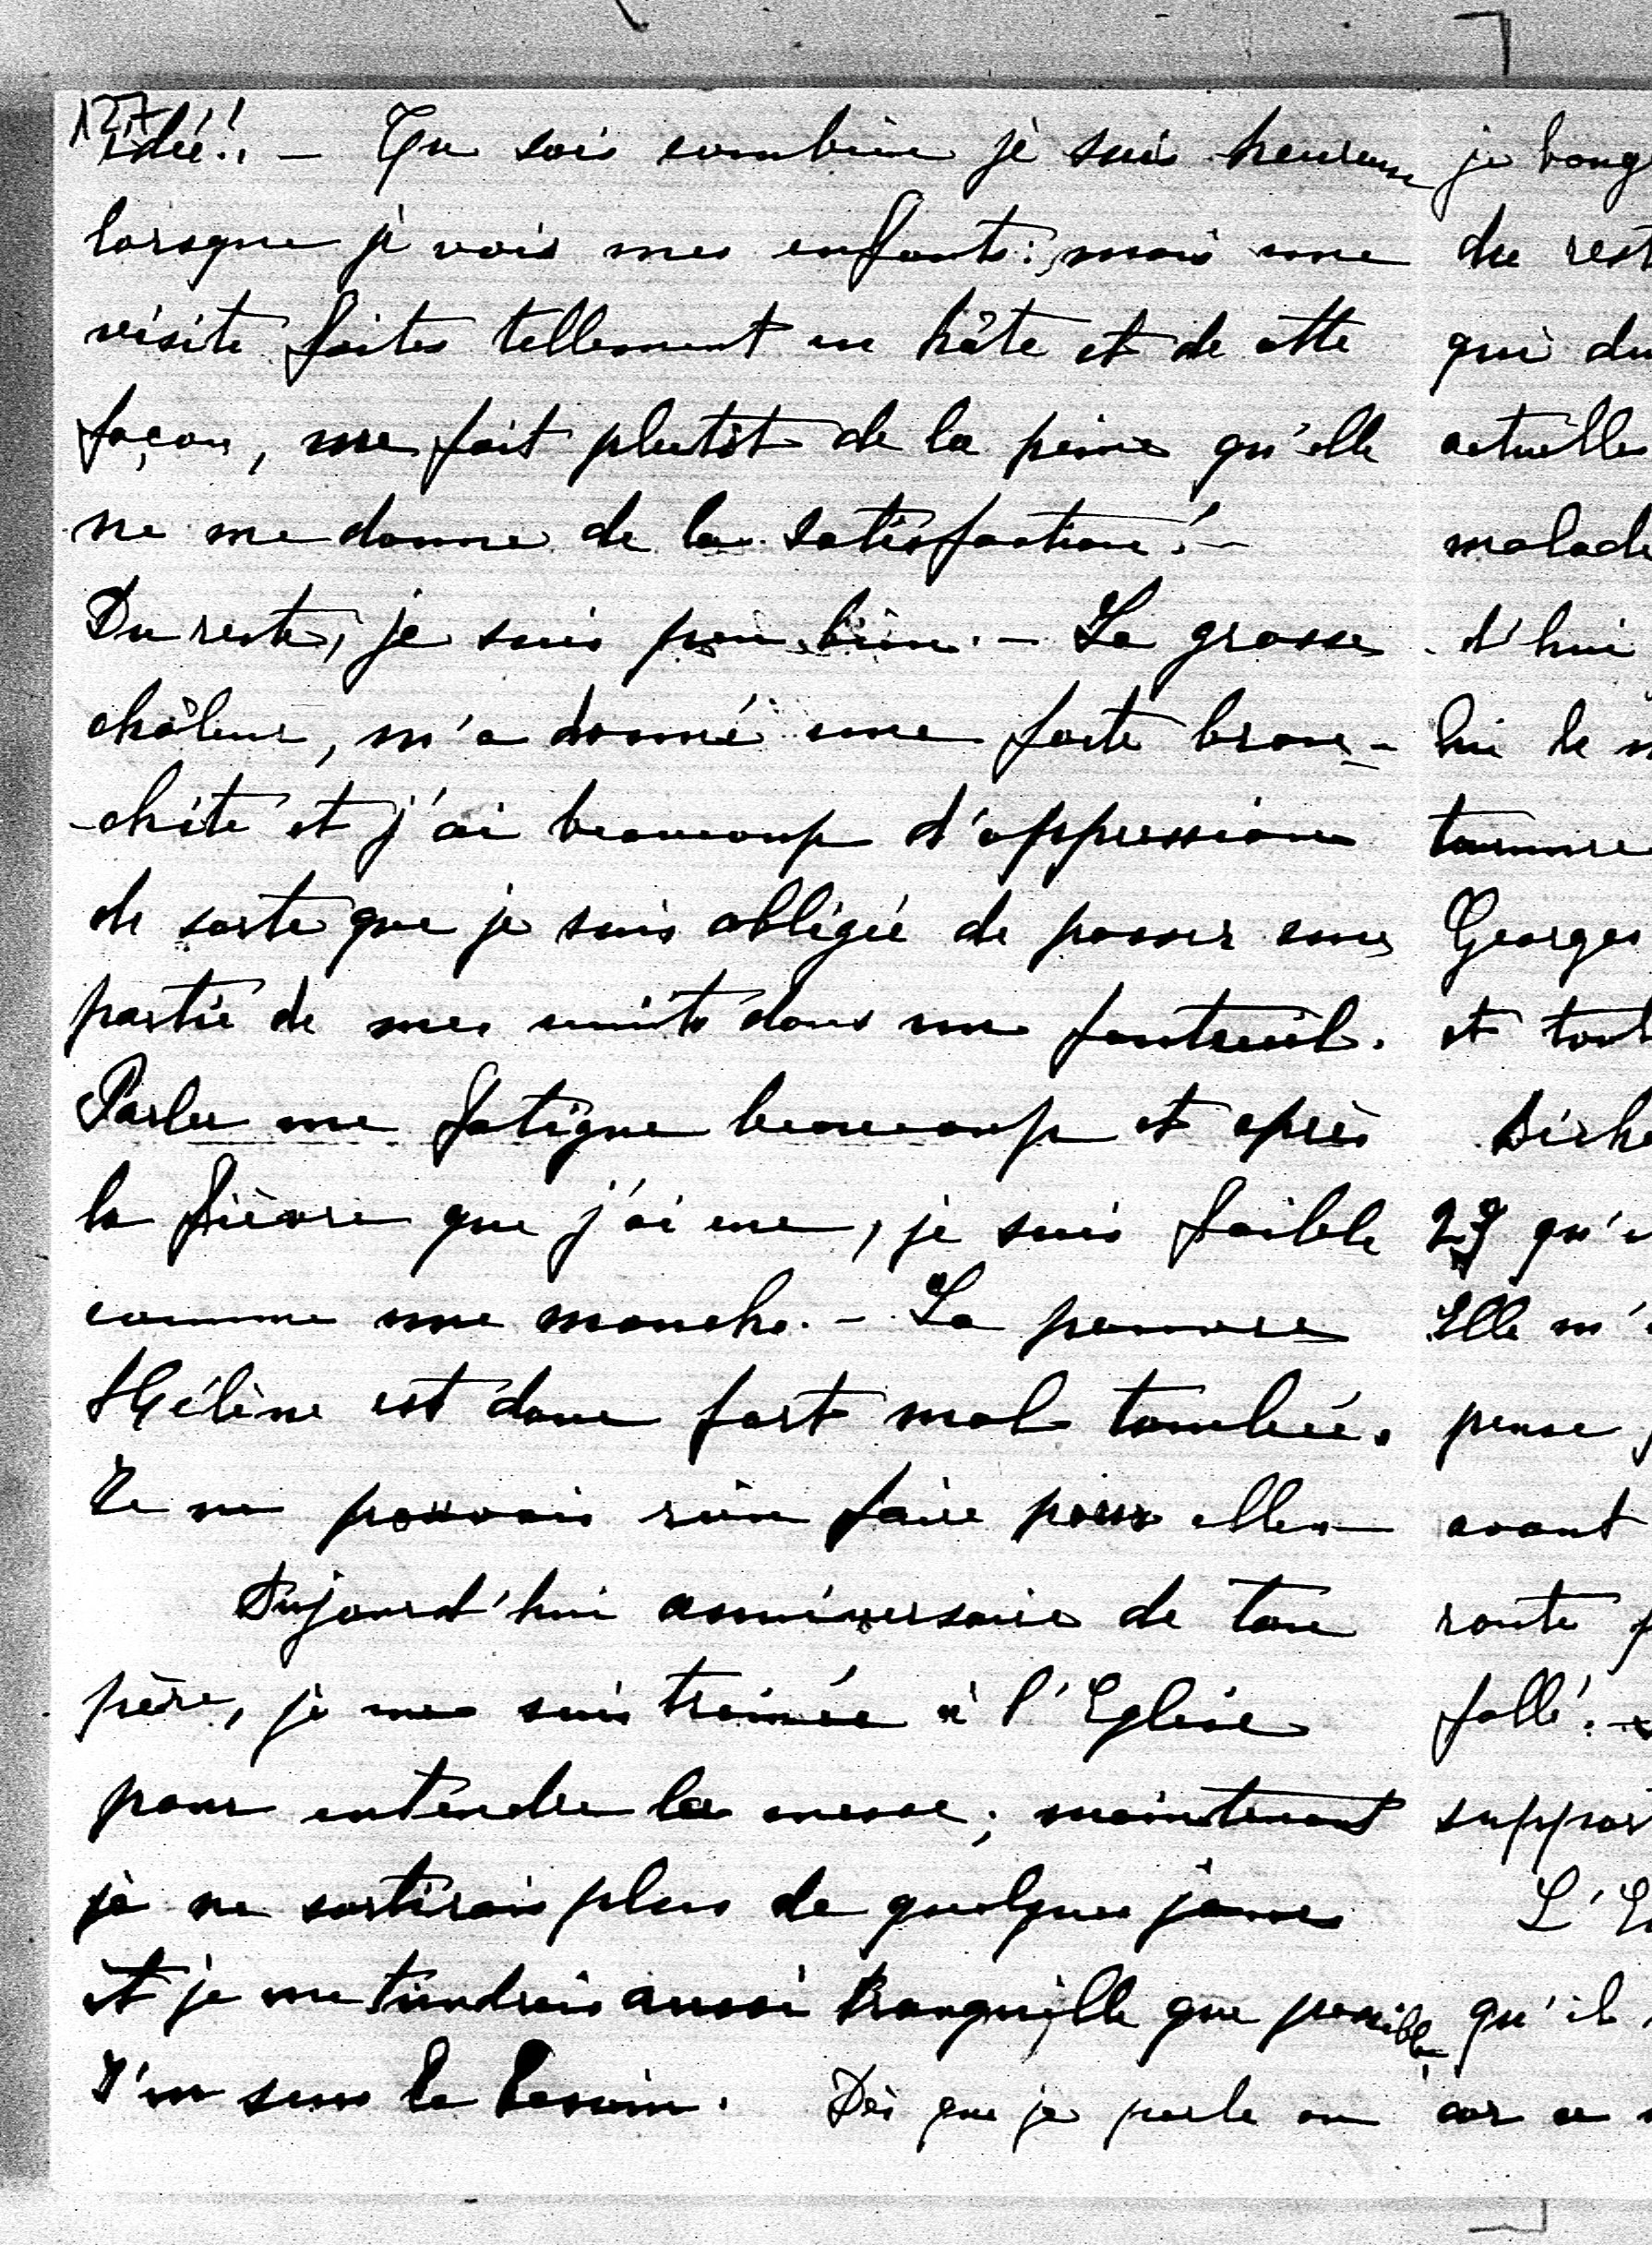 127
idée!! — Tu sais combien je suis heureuse
lorsque je vois mes enfants: mais une
visite faites tellement en hâte et de cette
façon, me fait plutôt de la peine qu'elle
ne me donne de la satisfaction! —
Du reste, je suis peu bien. — La grosse
châleur, m'a donné une forte bron-
-chite et j'ai beaucoup d'oppression
de sorte que je suis obligée de passer une
partie de mes nuits dans un fauteuil.
Parler me fatigue beaucoup et après
la fièvre que j'ai eue, je suis faible
comme une mouche. — La pauvre
Hélène est donc fort mal tombée.
Je ne pouvais rien faire pour elle. —
Aujourd'hui anniversaire de ton
père, je me suis traînée à l'Eglise
pour entendre la messe; maintenant
je ne sortirais plus de quelques jours
et je me tiendrais aussi tranquille que possible
J'en sens le besoin. Dès que je parle ou
je boug
du rest
qui du
actuelle
malade
d'hui
lui le
Georges
et tout
27 qu'
Elle m'
pense
avant
route
fallé! —
suppor
L'E
qu'il
car ce